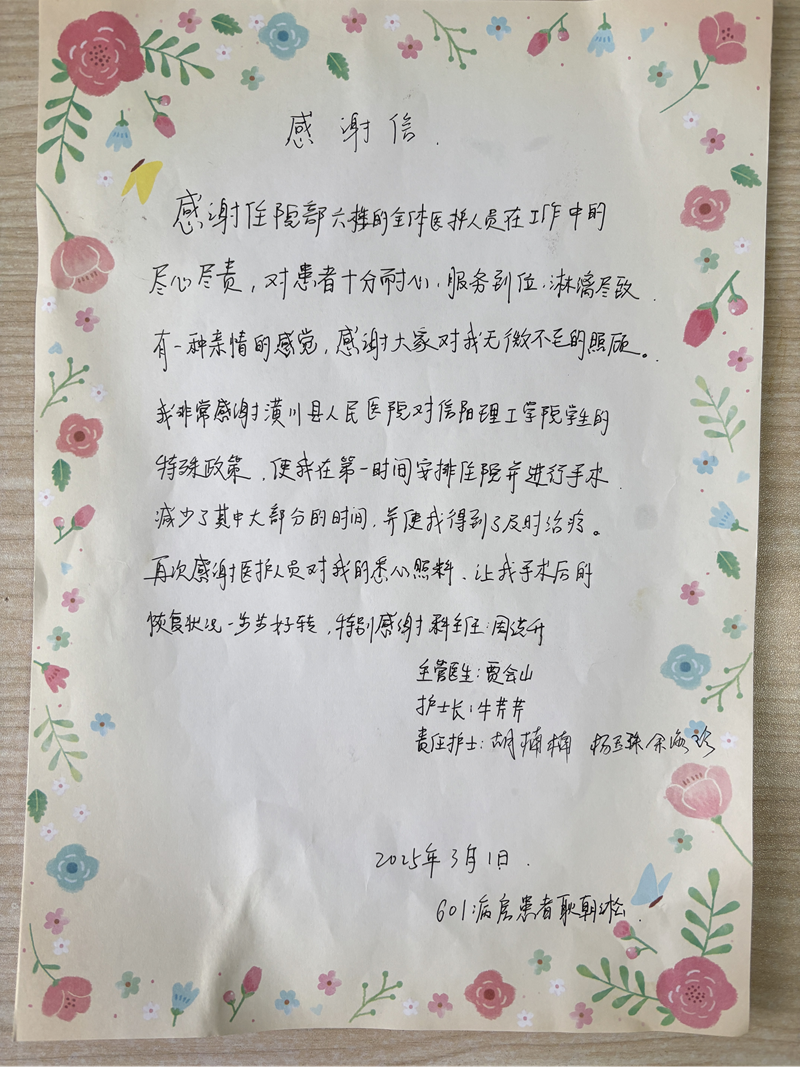 感谢信.
感谢住院部六楼的全体医护人员在工作中的
尽心尽责，对患者十分耐心，服务到位，淋漓尽致
有一种亲情的感觉，感谢大家对我无微不至的照顾。
我非常感谢潢川县人民医院对信阳理工学院学生的
特殊政策，使我在第一时间安排住院并进行手术
减少了其中大部分的时间，并使我得到了及时治疗。
再次感谢医护人员对我的悉心照料、让我手术后的
恢复状况一步步好转，特别感谢科主任:周
主管医生:贾会山
护士长:牛芹芹
责任护士:胡楠楠 杨玉珠 余海
2025年3月1日.
601病房患者耿朝淞.